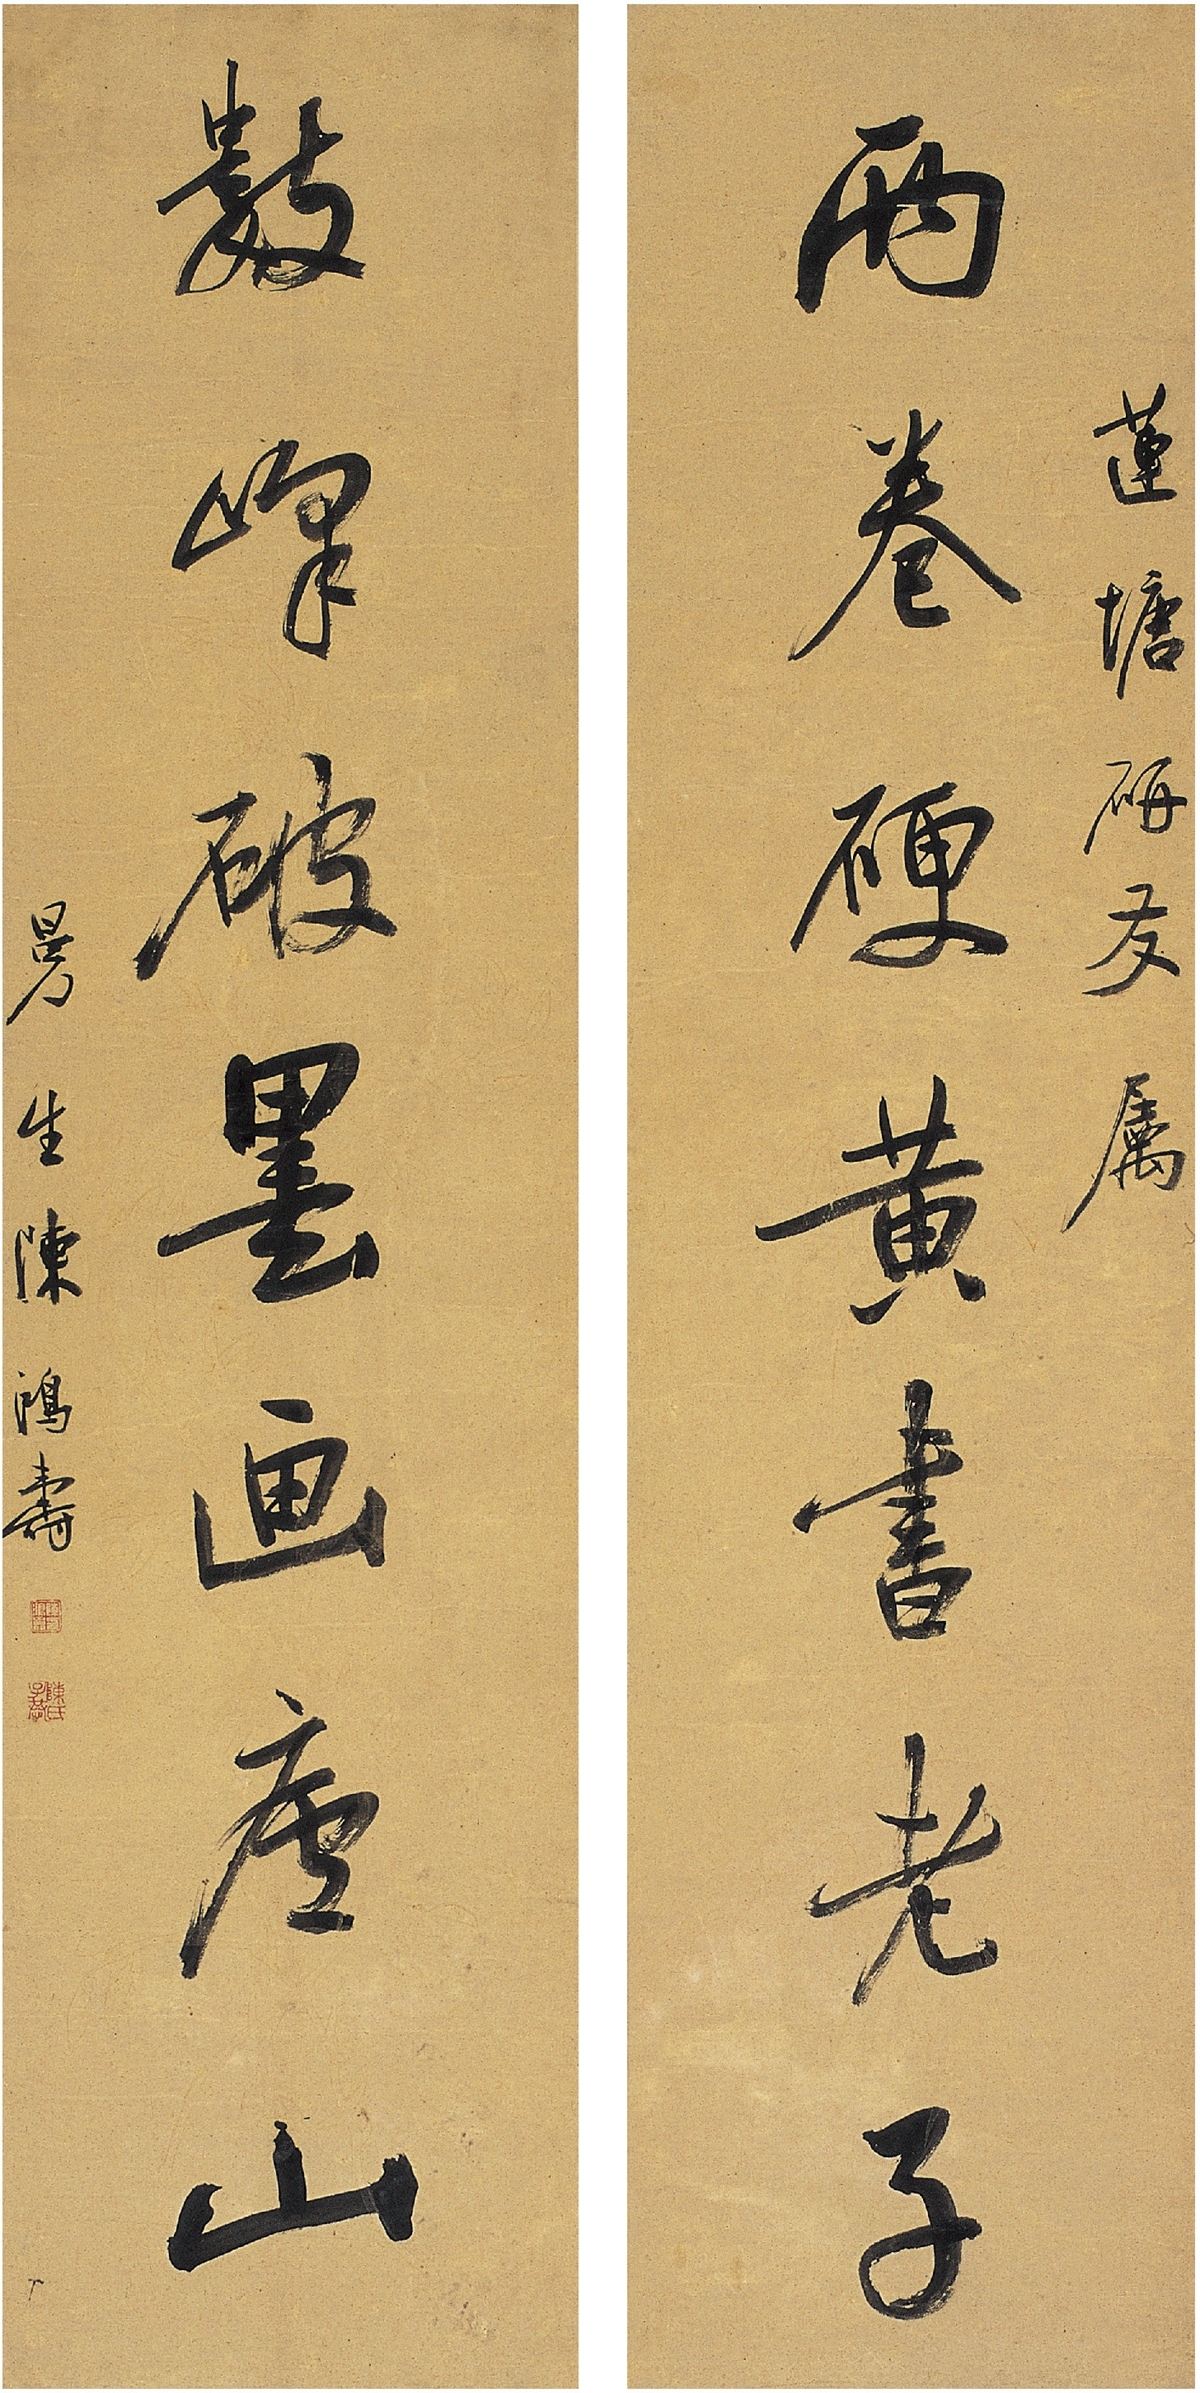 蓮塘研友属
兩卷硬黄書老子
數峰破墨画廬山
曼生陳鴻壽